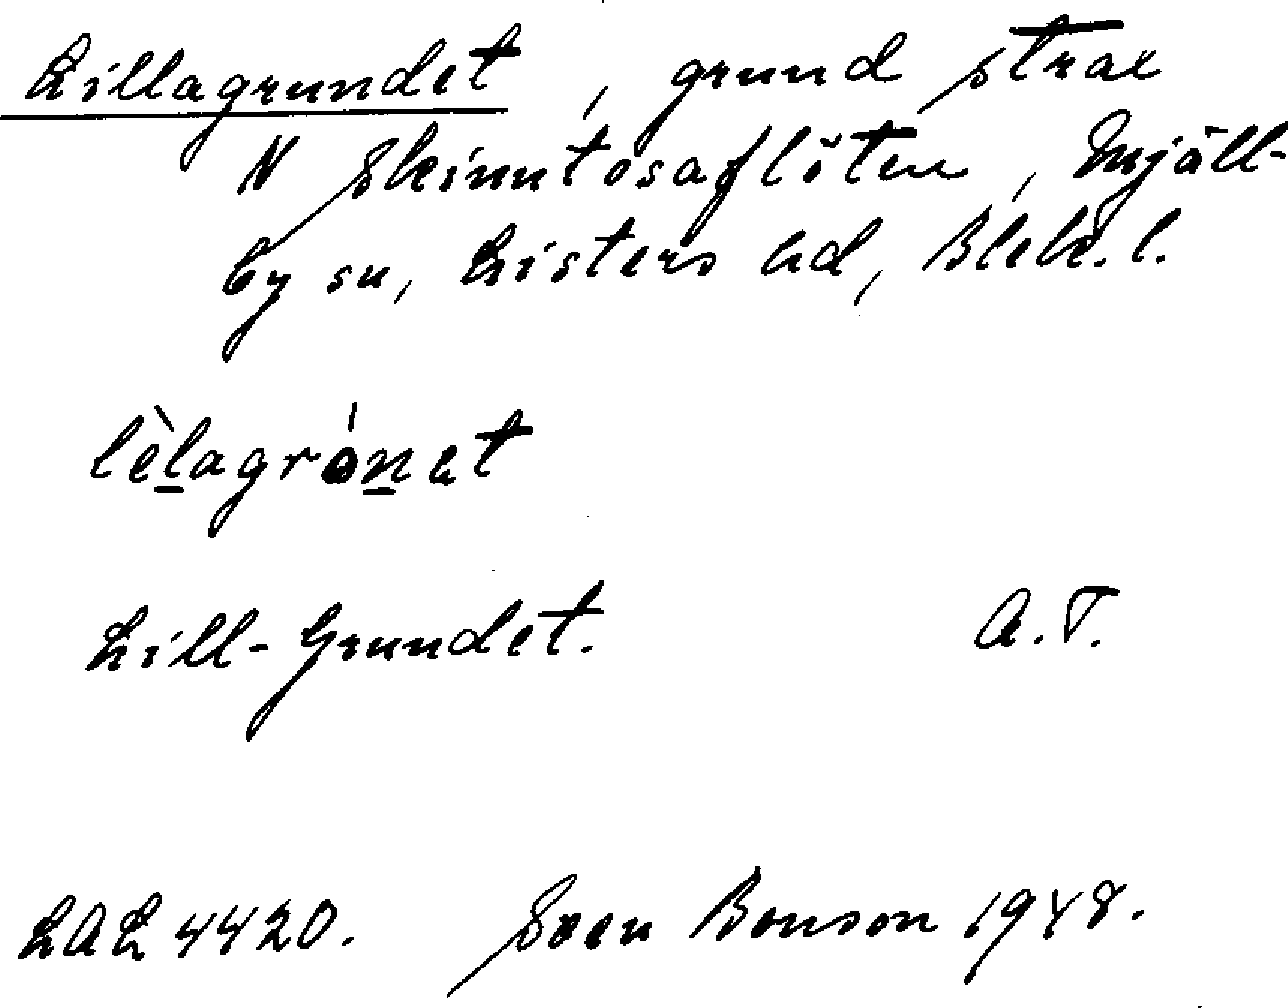 Lillagrundet, grund strax
N Skinntosaflöten, Mjäll-
by sn, Listers hd, Blek. l.
lèlagrónet
Lill-Grundet. A.T.
LAL 4420. Sven Benson 1948.